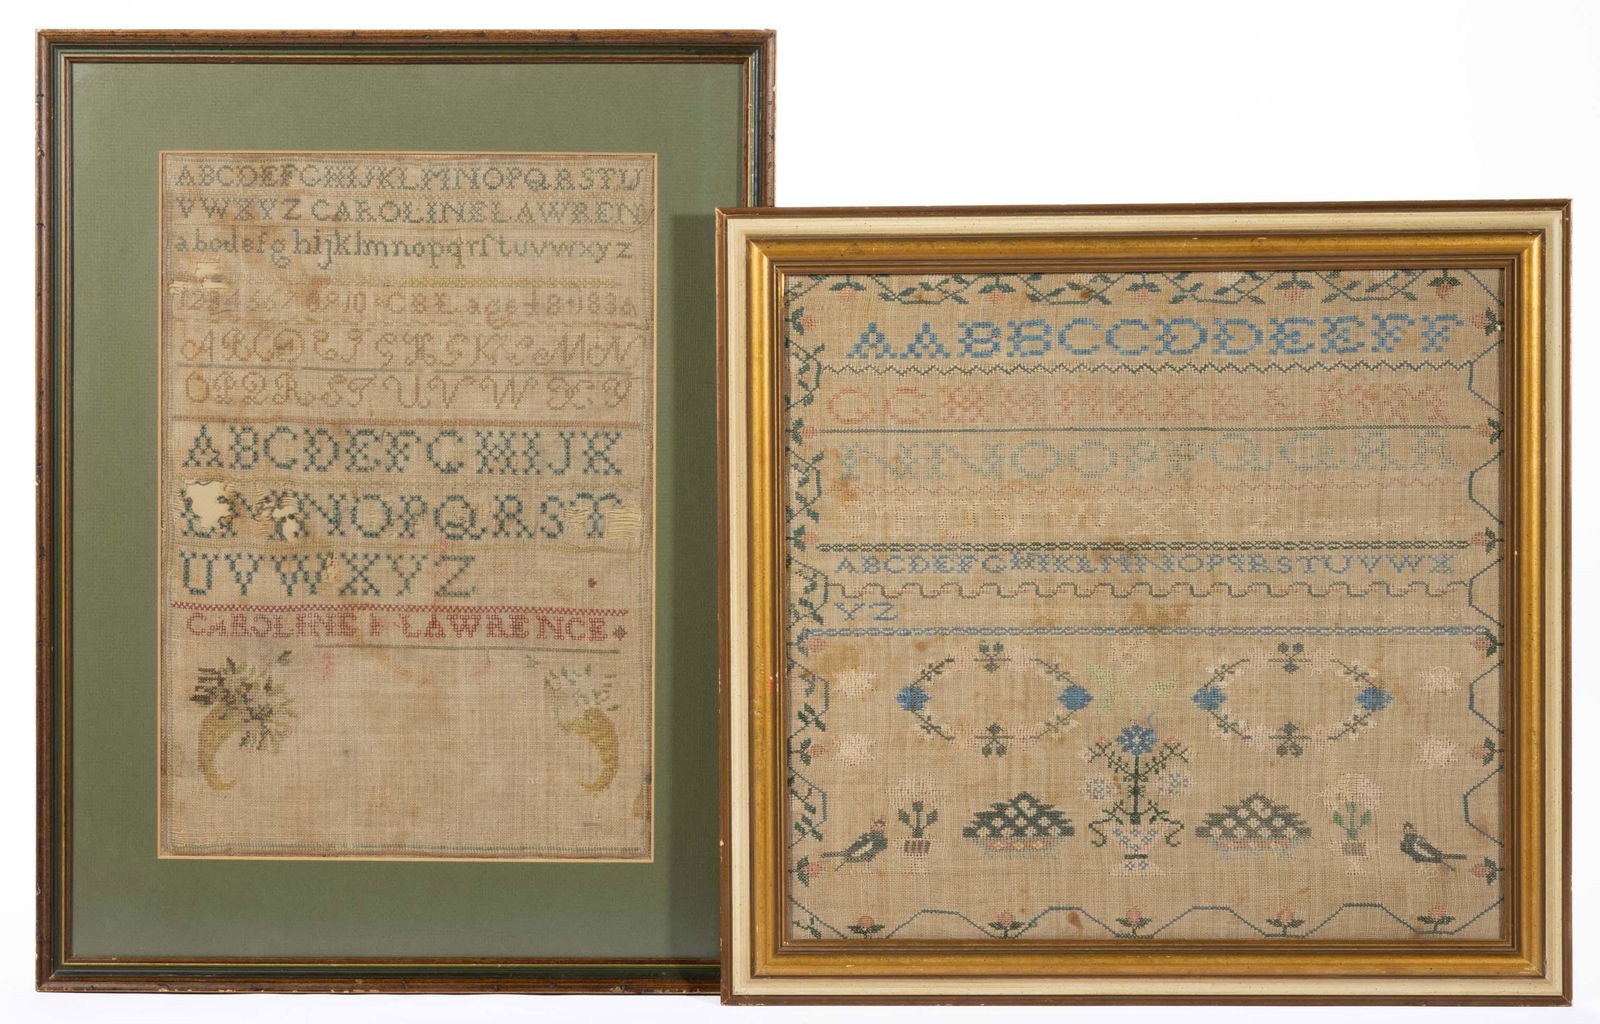 ABCDEFGHIJKLMNOPQRSTU
VWXYZ CAROLINELAWREN
abcdefghijklmnopqrſtuvwxyz
10 CBL age 8 183
ABCD GK MN
OPQR ST UVWXY
ABCDEFGHIJK
L NOPQRST
UVWXYZ
CAROLINE LAWRENCE
AABBCCDDEEFF
GGHHIIKKLLMM
NNOOPPQQRR
ABCDEFGHIKLMNOPQRSTUVWX
YZ